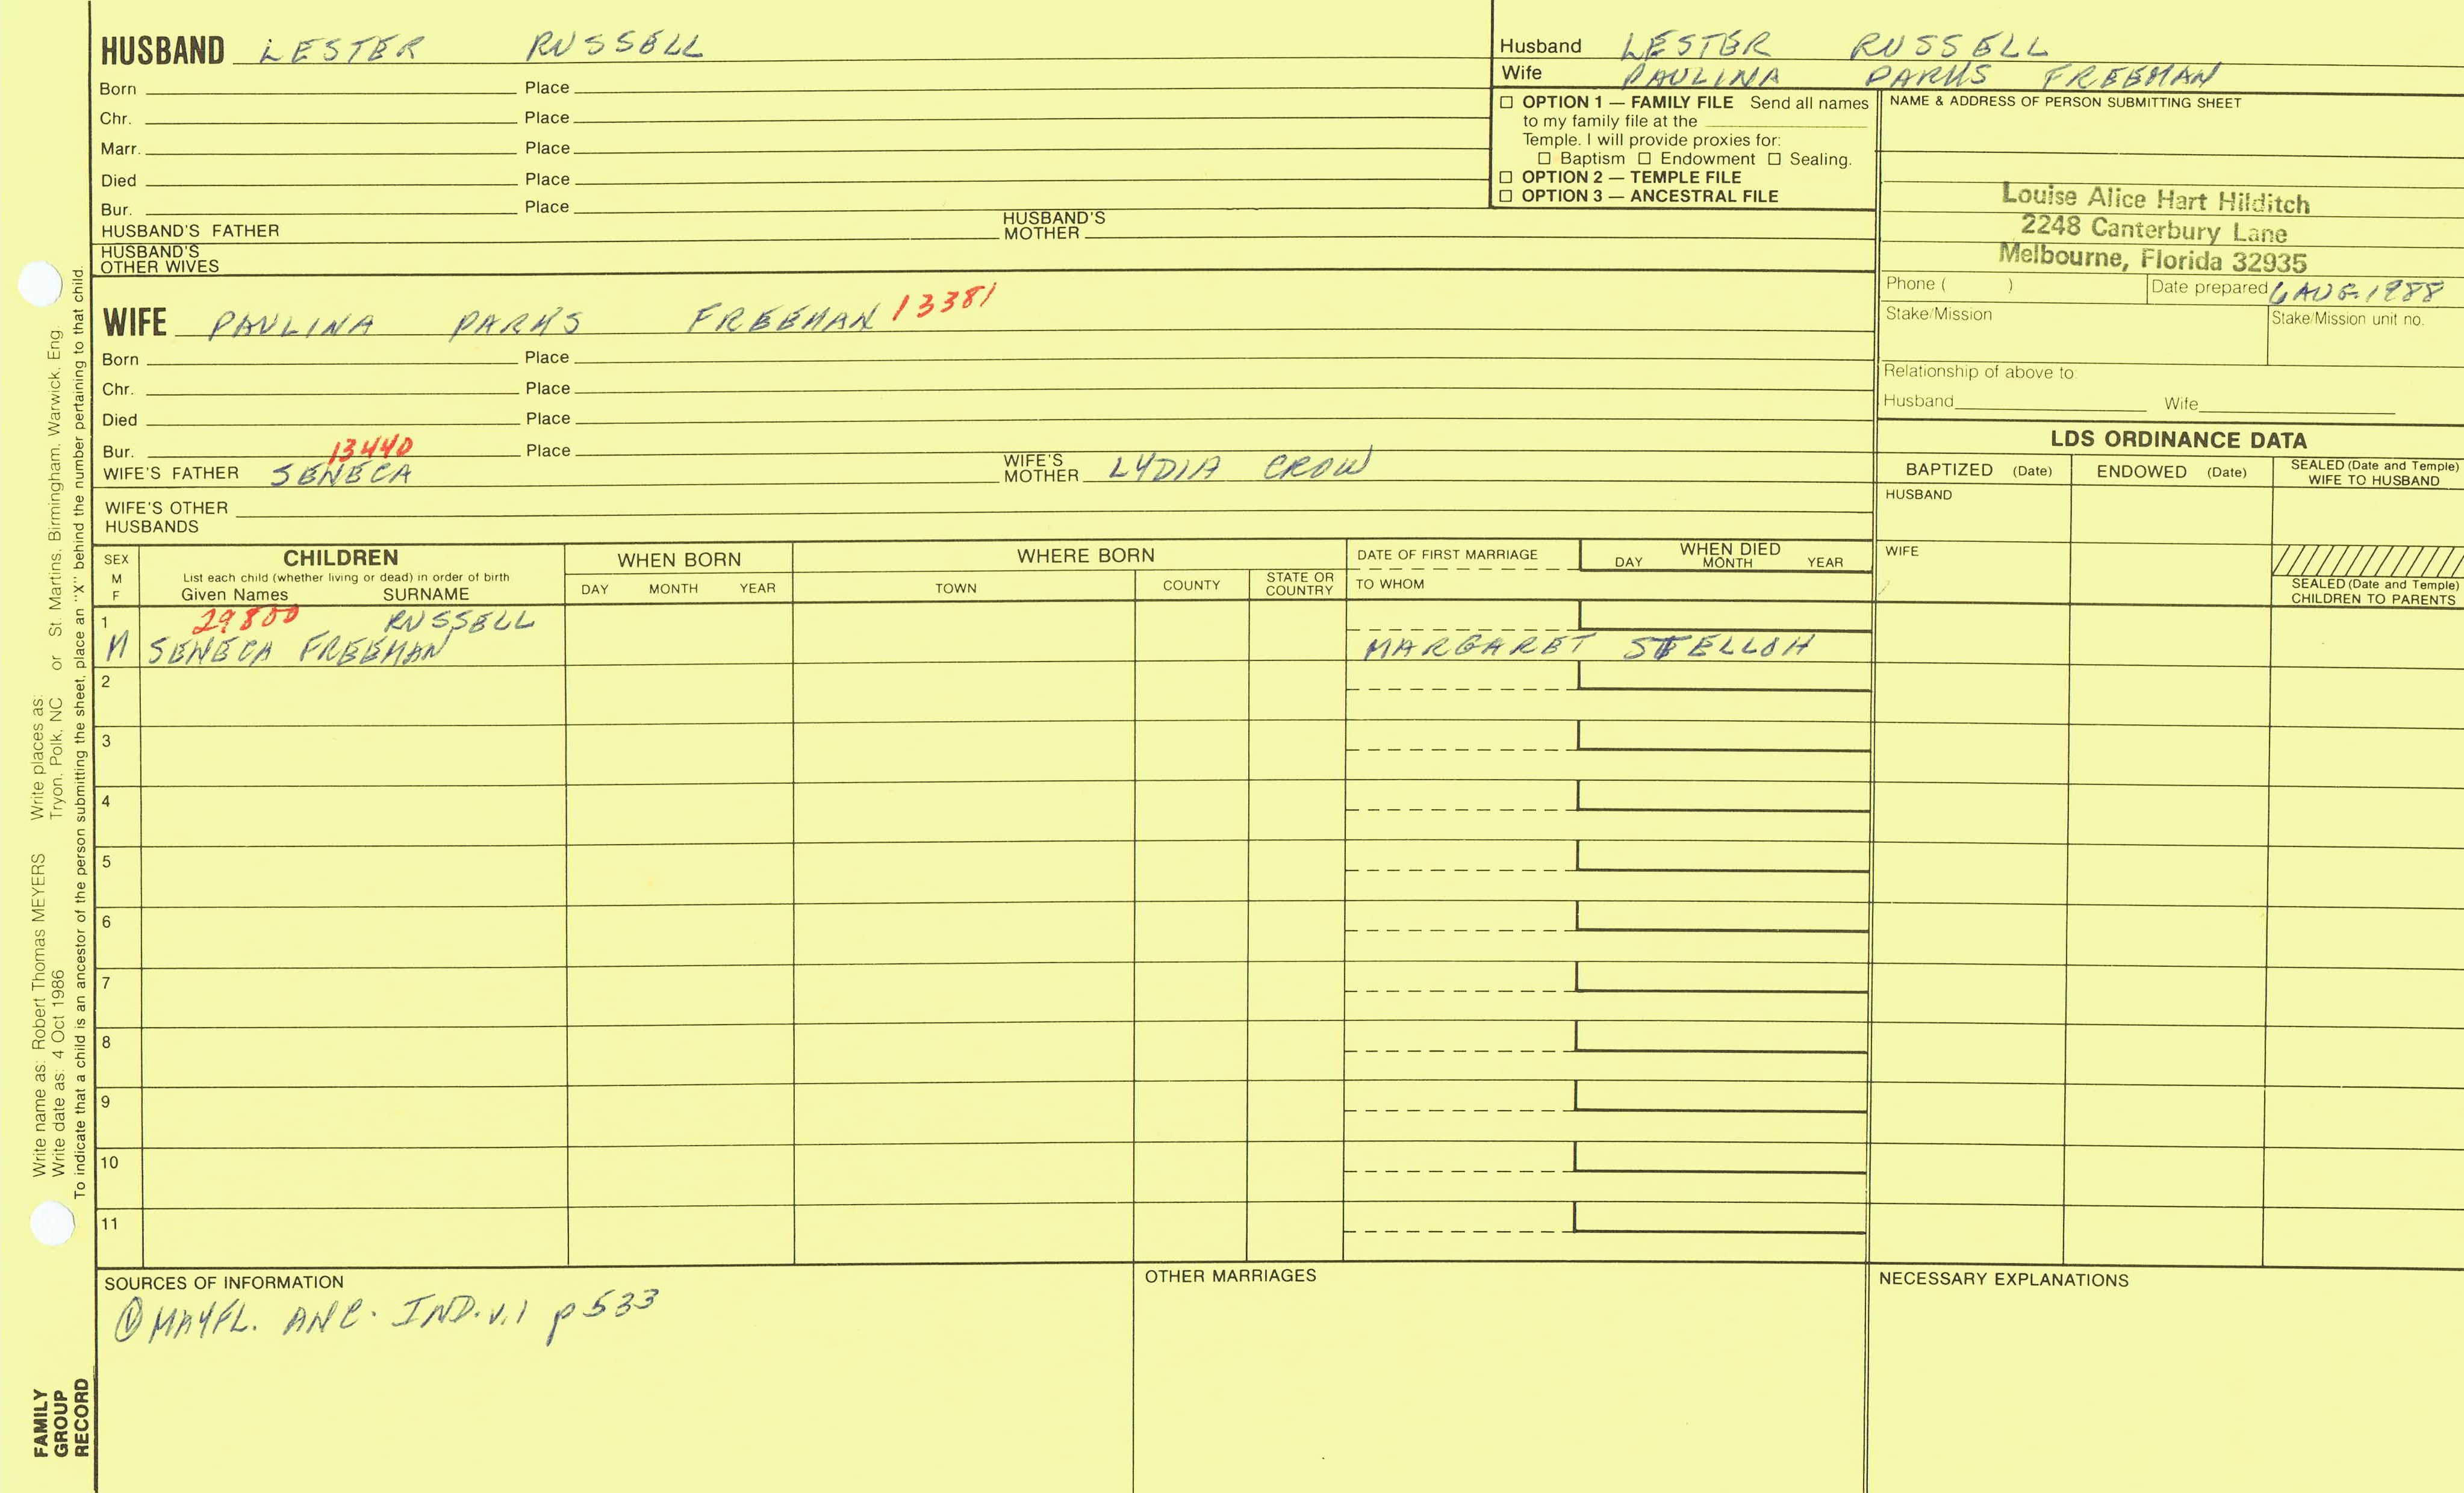 HUSBAND LESTER RUSSELL
Born Place
Chr. Place
Marr. Place
Died Place
Bur. Place
HUSBAND'S FATHER HUSBAND'S MOTHER
HUSBAND'S OTHER WIVES
Husband LESTER RUSSELL
Wife PAULINA PARKS FREEMAN
☐ OPTION 1 — FAMILY FILE Send all names
to my family file at the
Temple. I will provide proxies for:
☐ Baptism ☐ Endowment ☐ Sealing.
☐ OPTION 2 — TEMPLE FILE
☐ OPTION 3 — ANCESTRAL FILE
NAME & ADDRESS OF PERSON SUBMITTING SHEET
Louise Alice Hart Hilditch
2248 Canterbury Lane
Melbourne, Florida 32935
Phone ( ) Date prepared 6 AUG. 1988
Stake/Mission Stake/Mission unit no.
Relationship of above to:
Husband Wife
WIFE PAULINA PARKS FREEMAN 13381
Born Place
Chr. Place
Died Place
Bur. 13440 Place
WIFE'S FATHER SENECA WIFE'S MOTHER LYDIA CROW
WIFE'S OTHER
HUSBANDS
LDS ORDINANCE DATA
BAPTIZED (Date) ENDOWED (Date) SEALED (Date and Temple) WIFE TO HUSBAND
HUSBAND
WIFE
SEALED (Date and Temple)
CHILDREN TO PARENTS
SEX M F
CHILDREN
List each child (whether living or dead) in order of birth
Given Names SURNAME
WHEN BORN
DAY MONTH YEAR
WHERE BORN
TOWN COUNTY STATE OR COUNTRY
DATE OF FIRST MARRIAGE
TO WHOM
WHEN DIED
DAY MONTH YEAR
1 29800 RUSSELL
M SENECA FREEMAN MARGARET STELLOH
2
3
4
5
6
7
8
9
10
11
SOURCES OF INFORMATION
① MAYFL. ANC. IND. v.1 p533
OTHER MARRIAGES
NECESSARY EXPLANATIONS
Write name as: Robert Thomas MEYERS Write places as:
Write date as: 4 Oct 1986 Tryon, Polk, NC or St. Martins, Birmingham, Warwick, Eng
To indicate that a child is an ancestor of the person submitting the sheet, place an "X" behind the number pertaining to that child.
FAMILY
GROUP
RECORD